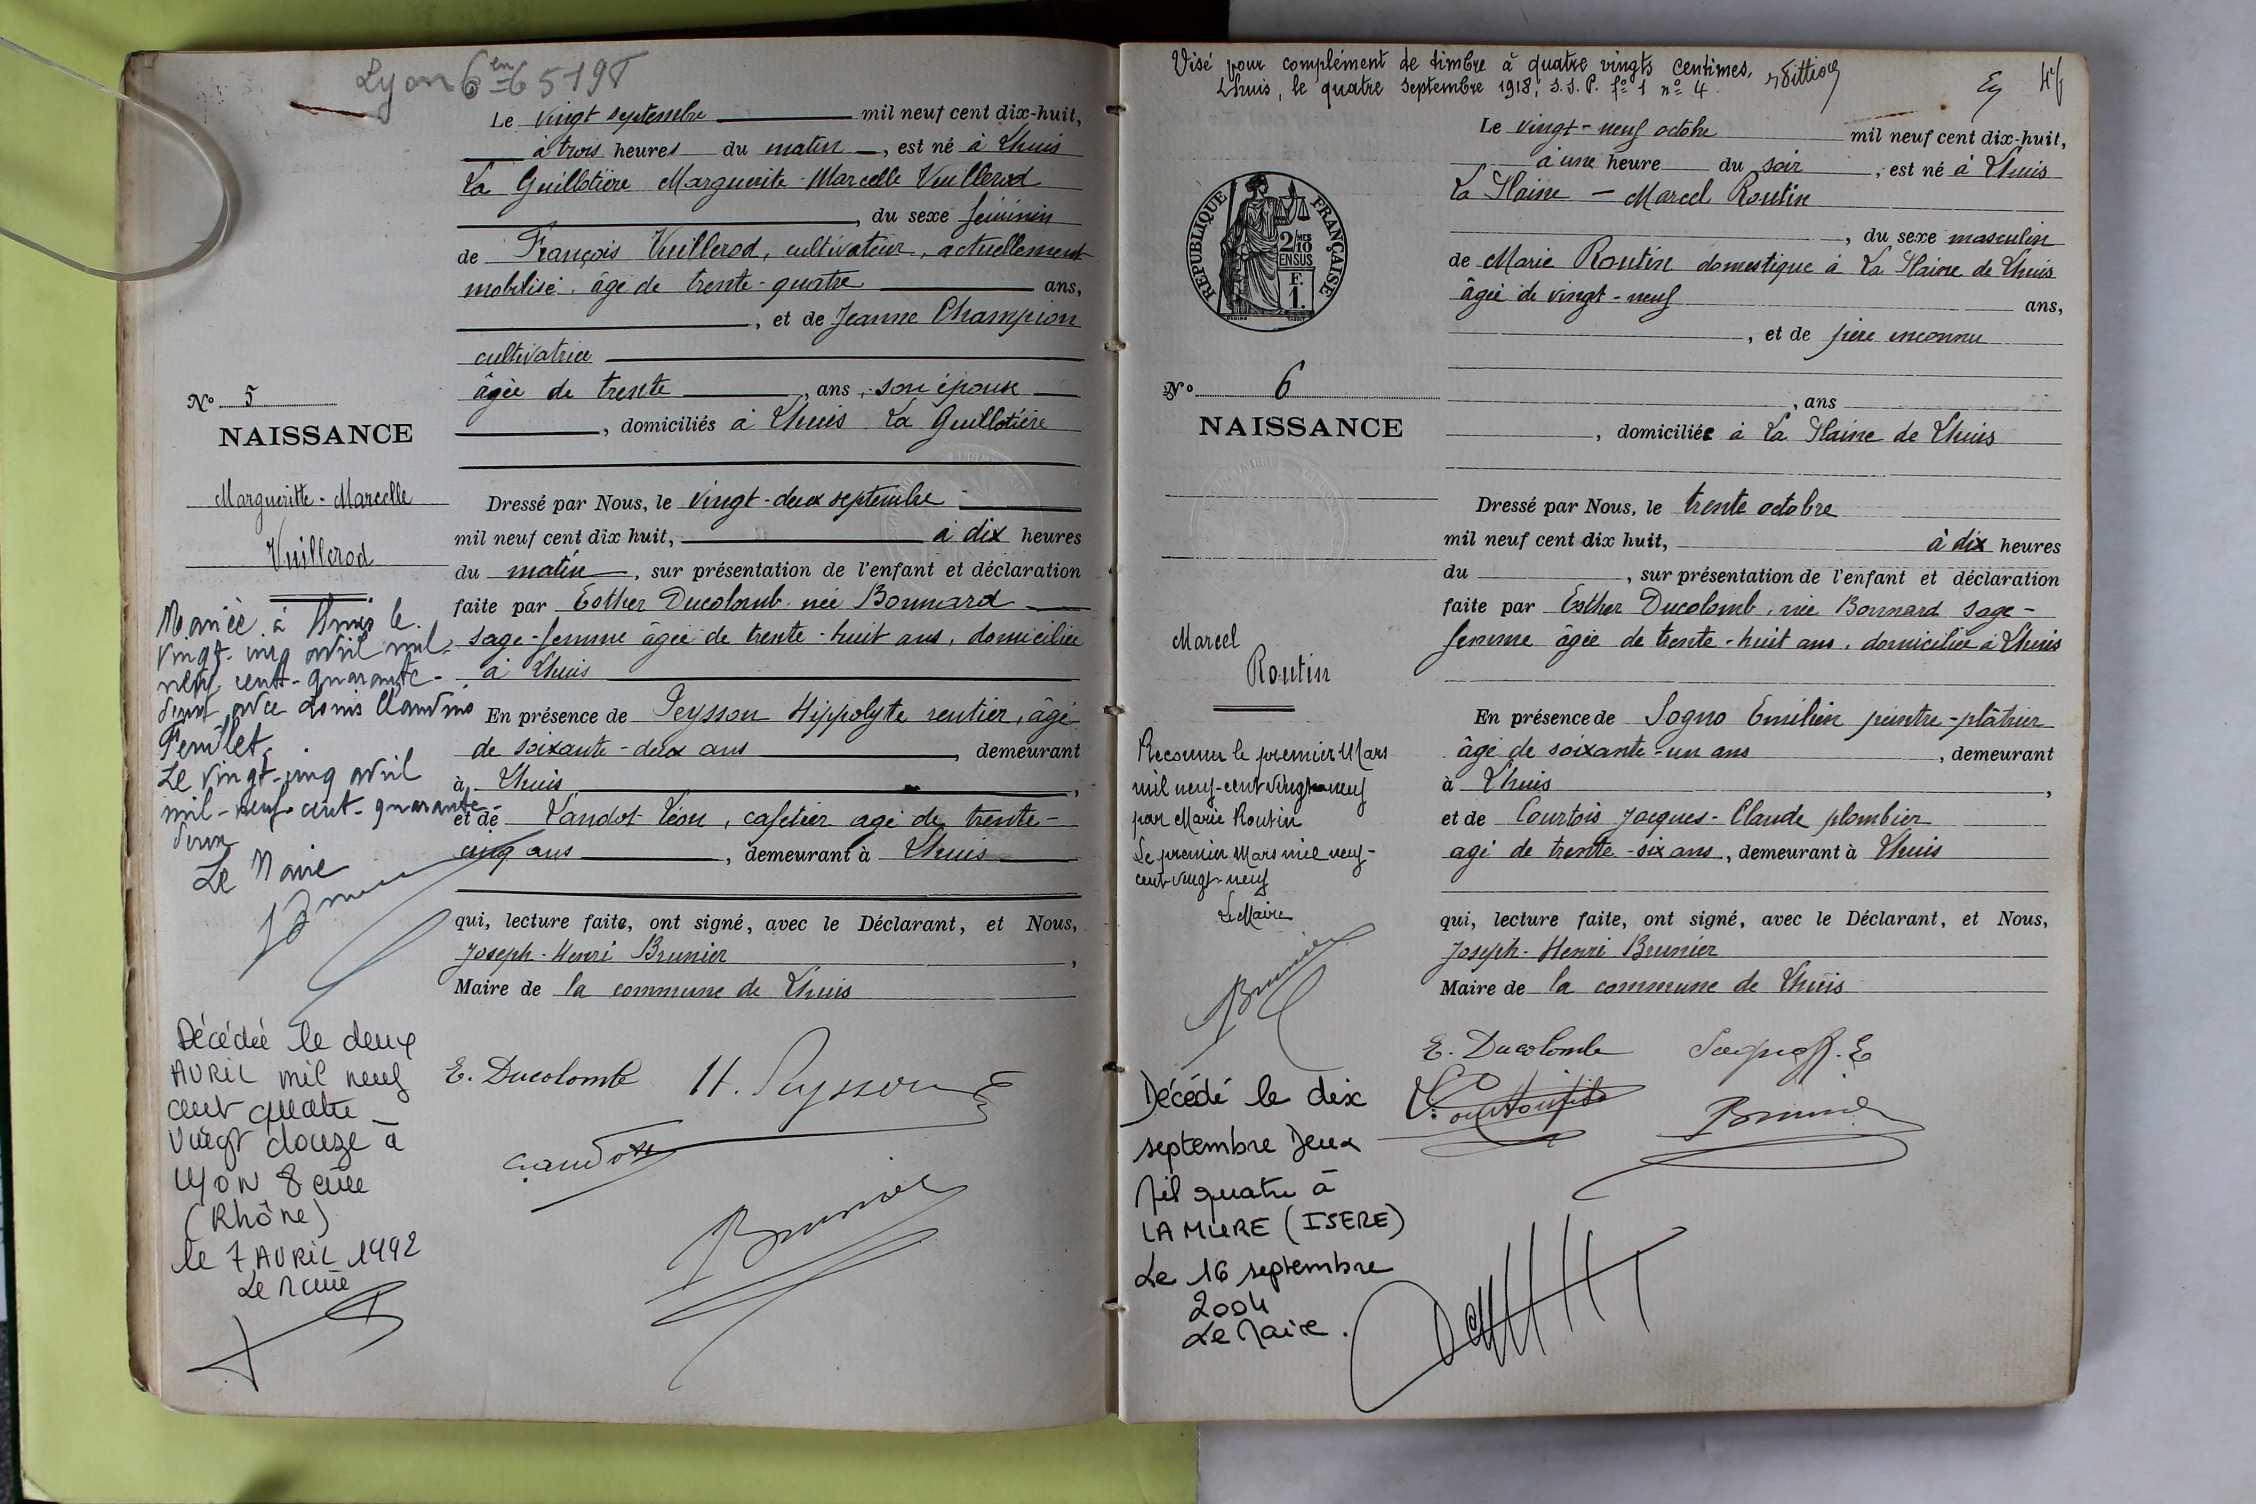 Lyon 6 en 6 5198
Le vingt septembre mil neuf cent dix-huit,
à trois heures du matin, est né à Lhuis
La Guillotière Marguerite-Marcelle Vuillerod
, du sexe féminin
de François Vuillerod, cultivateur, actuellement
mobilisé, âgé de trente-quatre ans,
, et de Jeanne Champion
cultivatrice
âgée de trente, ans, son épouse
, domiciliés à Lhuis La Guillotière
N° 5
NAISSANCE
Margueritte-Marcelle
Vuillerod
Dressé par Nous, le vingt-deux septembre
mil neuf cent dix huit, à dix heures
du matin, sur présentation de l'enfant et déclaration
faite par Esther Ducolomb née Bonnard
sage-femme âgée de trente-huit ans, domiciliée
à Lhuis
En présence de Peysson Hippolyte rentier, âgé
de soixante-deux ans, demeurant
à Lhuis,
et de Landot Léon, cafetier agé de trente-
cinq ans, demeurant à Lhuis
qui, lecture faite, ont signé, avec le Déclarant, et Nous,
Joseph-Henri Brunier,
Maire de la commune de Lhuis
Mariée à Lhuis le
vingt-cinq avril mil-
neuf-cent-quarante-
deux avec Louis Claudius
Le vingt-cinq avril
mil-neuf-cent-quarante-
deux
Le Maire
Décédée le deux
AVRIL mil neuf
cent quatre
vingt douze à
LYON 8ème
(Rhône)
le 7 AVRIL 1992
Le Maire
E. Ducolombe H. Peysson
Landot
Brunier
Visé pour complément de timbre à quatre vingts centimes,
Lhuis, le quatre septembre 1918; S.S.P. f° 1 n° 4.
RÉPUBLIQUE FRANÇAISE
2/10
EN SUS
F.
1.
Le vingt-neuf octobre mil neuf cent dix-huit,
à une heure du soir, est né à Lhuis
La Plaine - Marcel Routin
, du sexe masculin
de Marie Routin domestique à La Plaine de Lhuis
âgée de vingt-neuf ans,
, et de père inconnu
, ans
, domiciliée à La Plaine de Lhuis
N° 6
NAISSANCE
Marcel
Routin
Dressé par Nous, le trente octobre
mil neuf cent dix huit, à dix heures
du , sur présentation de l'enfant et déclaration
faite par Esther Ducolomb, née Bonnard sage-
femme âgée de trente-huit ans, domiciliée à Lhuis
En présence de Sogno Emilien peintre-plâtrier
âgé de soixante-un ans, demeurant
à Lhuis,
et de Courtois Jacques-Claude plombier
agé de trente-six ans, demeurant à Lhuis
qui, lecture faite, ont signé, avec le Déclarant, et Nous,
Joseph-Henri Brunier
Maire de la commune de Lhuis
Reconnu le premier Mars
mil neuf-cent vingt-neuf
par Marie Routin
Le premier Mars mil neuf-
cent vingt-neuf
Le Maire
Brunier
Décédé le dix
septembre Deux
Mil quatre à
LA MURE (ISERE)
Le 16 septembre
2004
Le Maire.
E. Ducolombe
Brunier